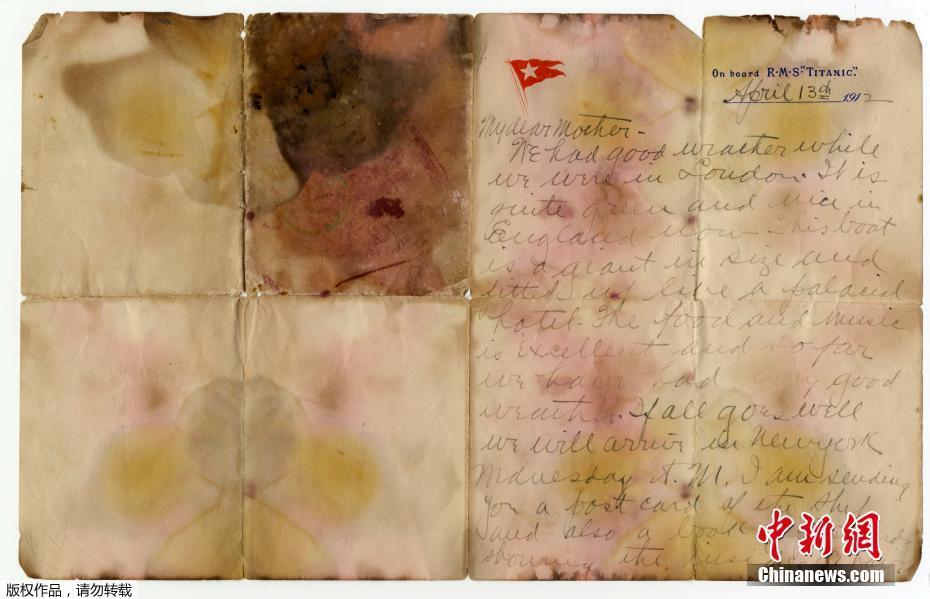 On board R·M·S "TITANIC".
April 13th 1912
My dear Mother -
We had good weather while
we were in London. It is
quite green and nice in
England now. This boat
is a giant in size and
fitted up like a palacial
hotel. The food and music
is excellent and so far
we have had very good
weather. If all goes well
we will arrive in New York
Wednesday A.M. I am sending
you a post card of the ship
and also a book
showing the inside
中新網
Chinanews.com
版权作品，请勿转载